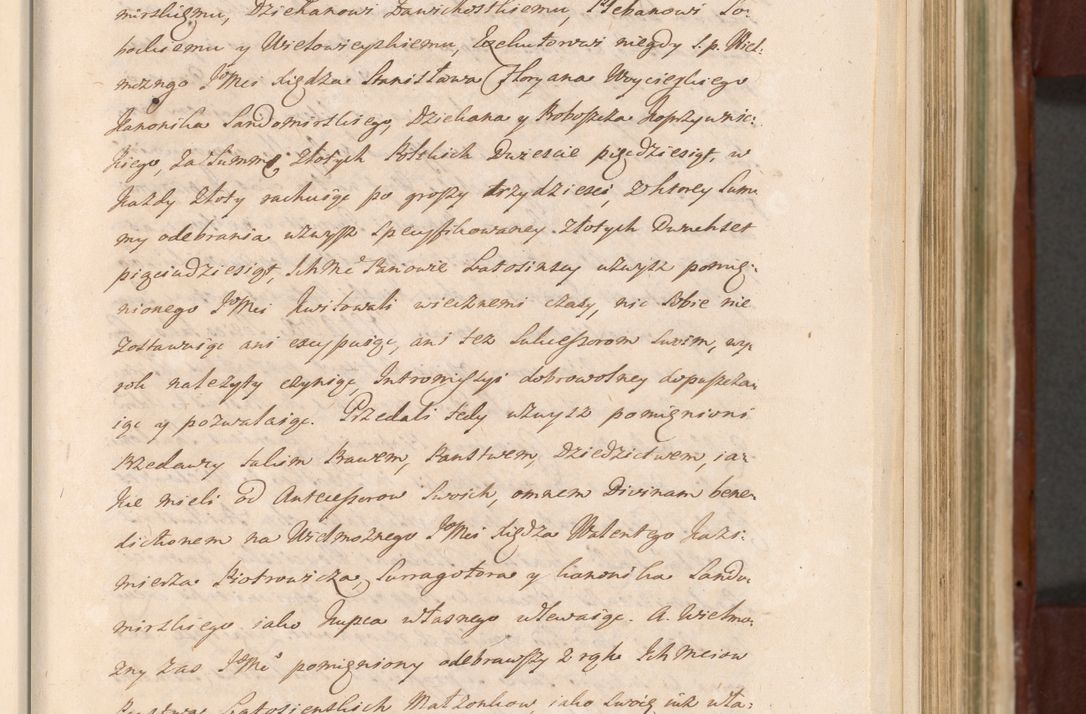 mirskiemu, Dziekanowi Zawichostskiemu, Plebanowi So-
bockiemu y Wielowieyskiemu, Exekutorowi niegdy ś. p. Wiel-
możnego JoMci Xiędza Stanisława Floryana Woycieskiego
Kanonika Sandomirskiego, Dziekana y Proboszcza Koprzywnic-
kiego, za Summę Złotych Polskich Dwieście pięćdziesiąt, w
każdy złoty rachuiąc po groszy trzydzieści, z ktorey Sum-
my odebrania uzwysz specyfikowaney Złotych Dwuchset
pięciudziesiąt, Ichmć Panowie uzwysz pomię-
nionego JoMci kwitowali wiecznemi czasy, nic sobie nie
zostawuiąc ani excypuiąc, ani też Sukcessorom swoim, wy-
rok należyty czyniąc, Intromissyi dobrowolney dopuszcza-
iąc y pozwalaiąc. Przedali tedy uzwysz pomięnioni
Przedawcy takim Prawem, Panstwem, Dziedzictwem, ia-
kie mieli od Antecessorow swoich, omnem Divinam bene-
dictionem na Wielmożnego JoMci Xiędza Walentego Kazi-
mierza Piotrowicza, Surrogatora y kanonika Sando-
mirskiego iako Kupca własnego wlewaiąc. A. Wielmo-
żny zas JoMć pomięniony odebrawszy z rąk Ichmciow
Małżonkow, iako swoię iuż wła-